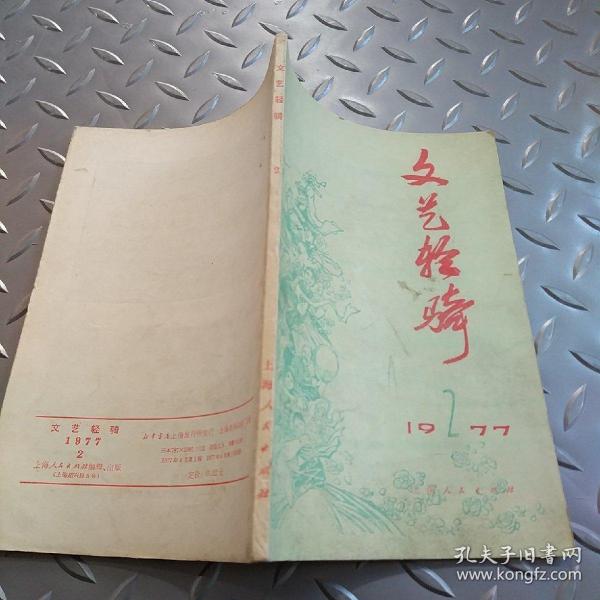 文艺轻骑
2
1977
上海人民出版社
文艺轻骑
2
上海人民出版社
文艺轻骑
1977
2
上海人民出版社编辑、出版
(上海绍兴路5号)
孔夫子旧书网
www.kongfz.com